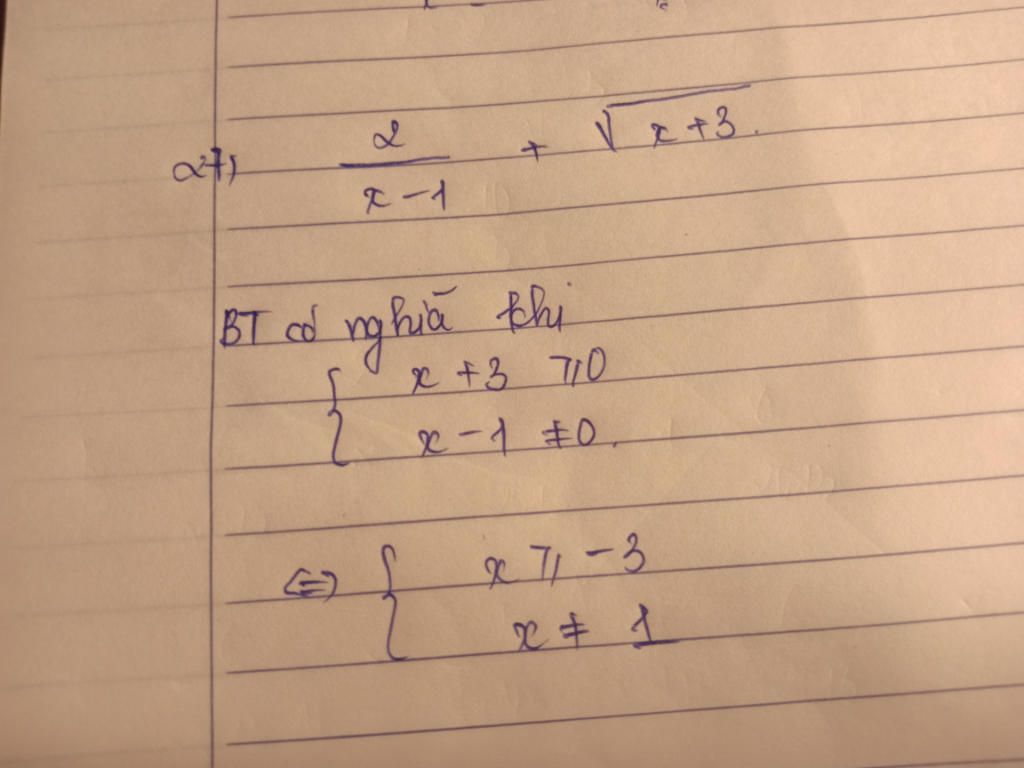 27) 2/(x-1) + √(x+3).
BT có nghĩa khi
{ x + 3 ⩾ 0
x - 1 ≠ 0.
<=> { x ⩾ -3
x ≠ 1